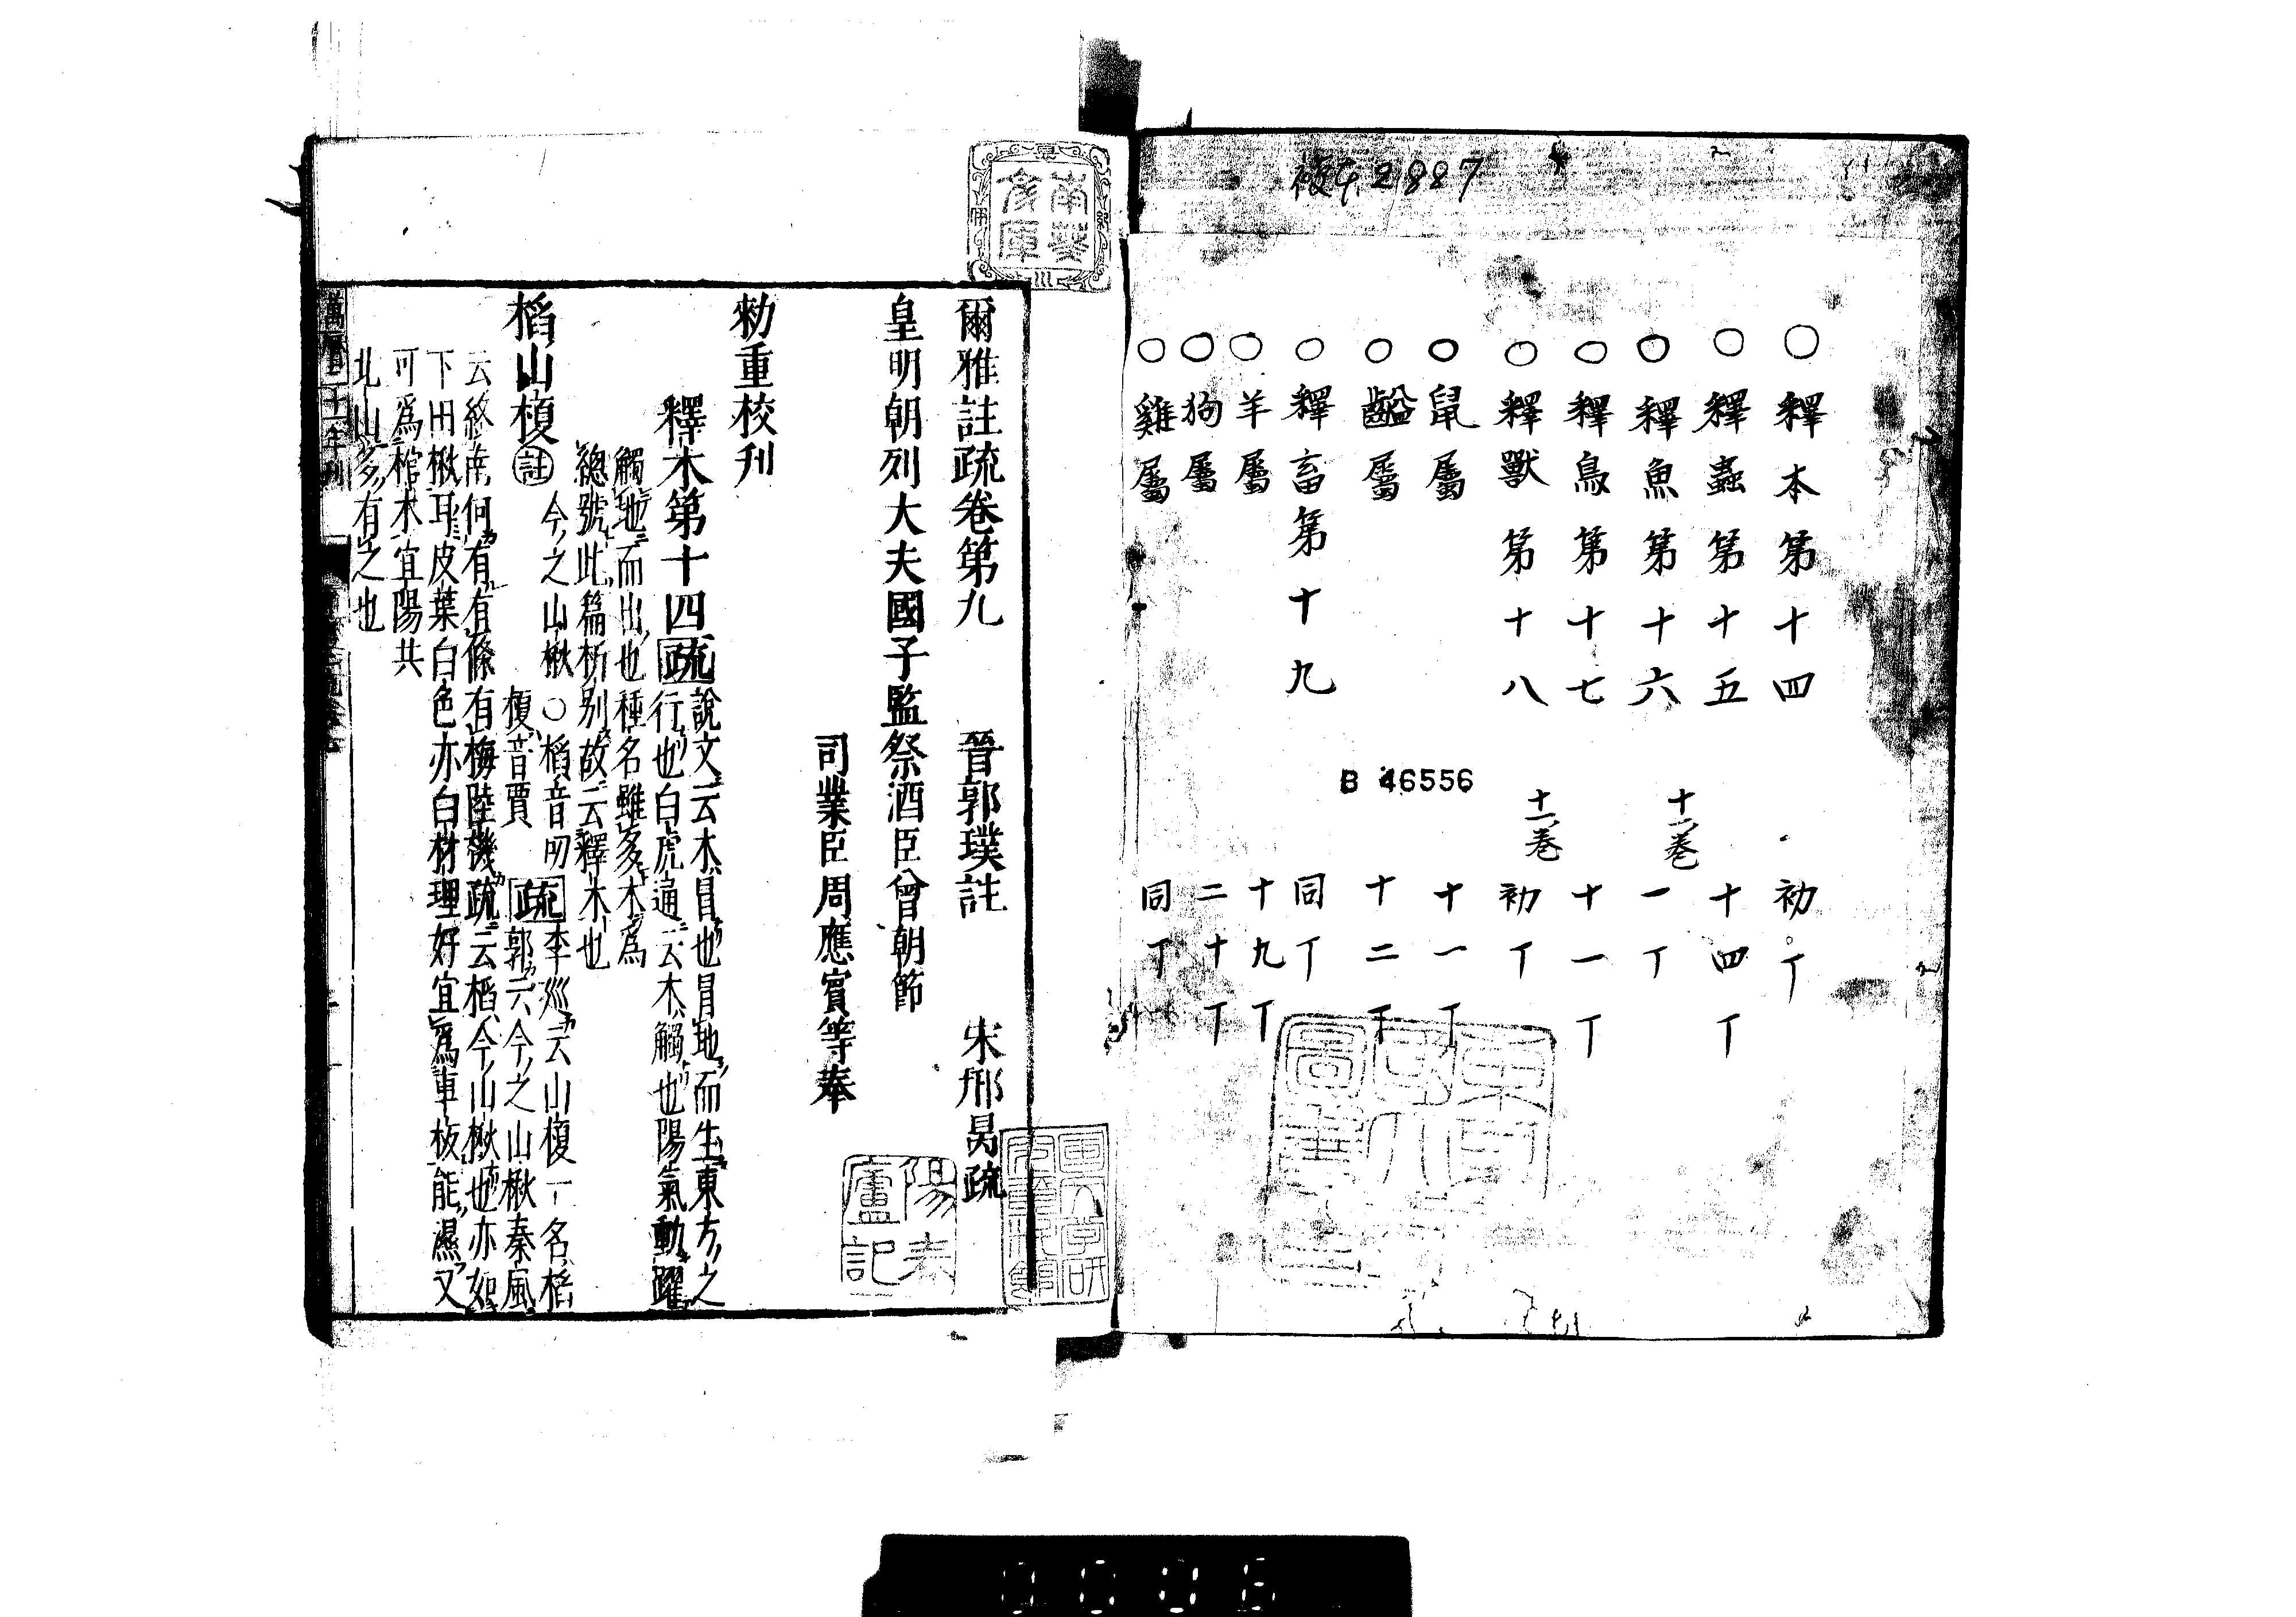 複4.2887
○釋本第十四 初丁
○釋蟲第十五 十四丁
○釋魚第十六 十一巻 一丁
○釋鳥第十七 十一丁
○釋獸第十八 十一巻 初丁
○鼠屬 十一丁
○齸屬 十二丁
○釋畜第十九 同丁
○羊屬 十九丁
○狗屬 二十丁
○雞屬 同丁
B 46556
南葵文庫
爾雅註疏卷第九 晉郭璞註 宋邢昺疏
皇明朝列大夫國子監祭酒臣曾朝節
司業臣周應賓等奉
勅重校刊
釋木第十四疏說文云木冒也冒地而生東方之
行也白虎通云木觸也陽氣動躍
觸地而出也種名雖多木爲
總號此篇析別故云釋木也
稻山榎註今之山楸○稻音叨榎音賈疏李巡云山榎一名稻
郭云今之山楸秦風
云終南何有有條有梅陸機疏云稻今山楸也亦如
下田楸耳皮葉白色亦白材理好宜爲車板能濕又
可爲棺木宜陽共
北山多有之也
陽春廬記